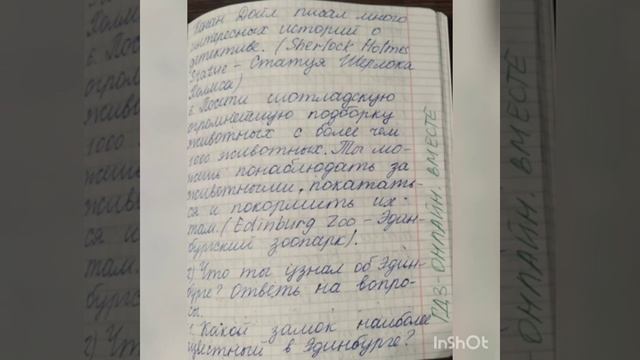 Конан Дойл писал много
интересных историй о
детективе. (Sherlock Holmes
Statue - Статуя Шерлока
Холмса)
6. Посети шотладскую
огромнейшую подборку
животных с более чем
1000 животных. Ты мо-
жешь понаблюдать за
животными, покатать-
ся и покормить их
там. (Edinburg Zoo - Эдин-
бургский зоопарк).
2) Что ты узнал об Эдин-
бурге? Ответь на вопро-
сы.
1. Какой замок наиболее
в Эдинбурге?
ГДЗ-ОНЛАЙН. ВМЕСТЕ
InShOt